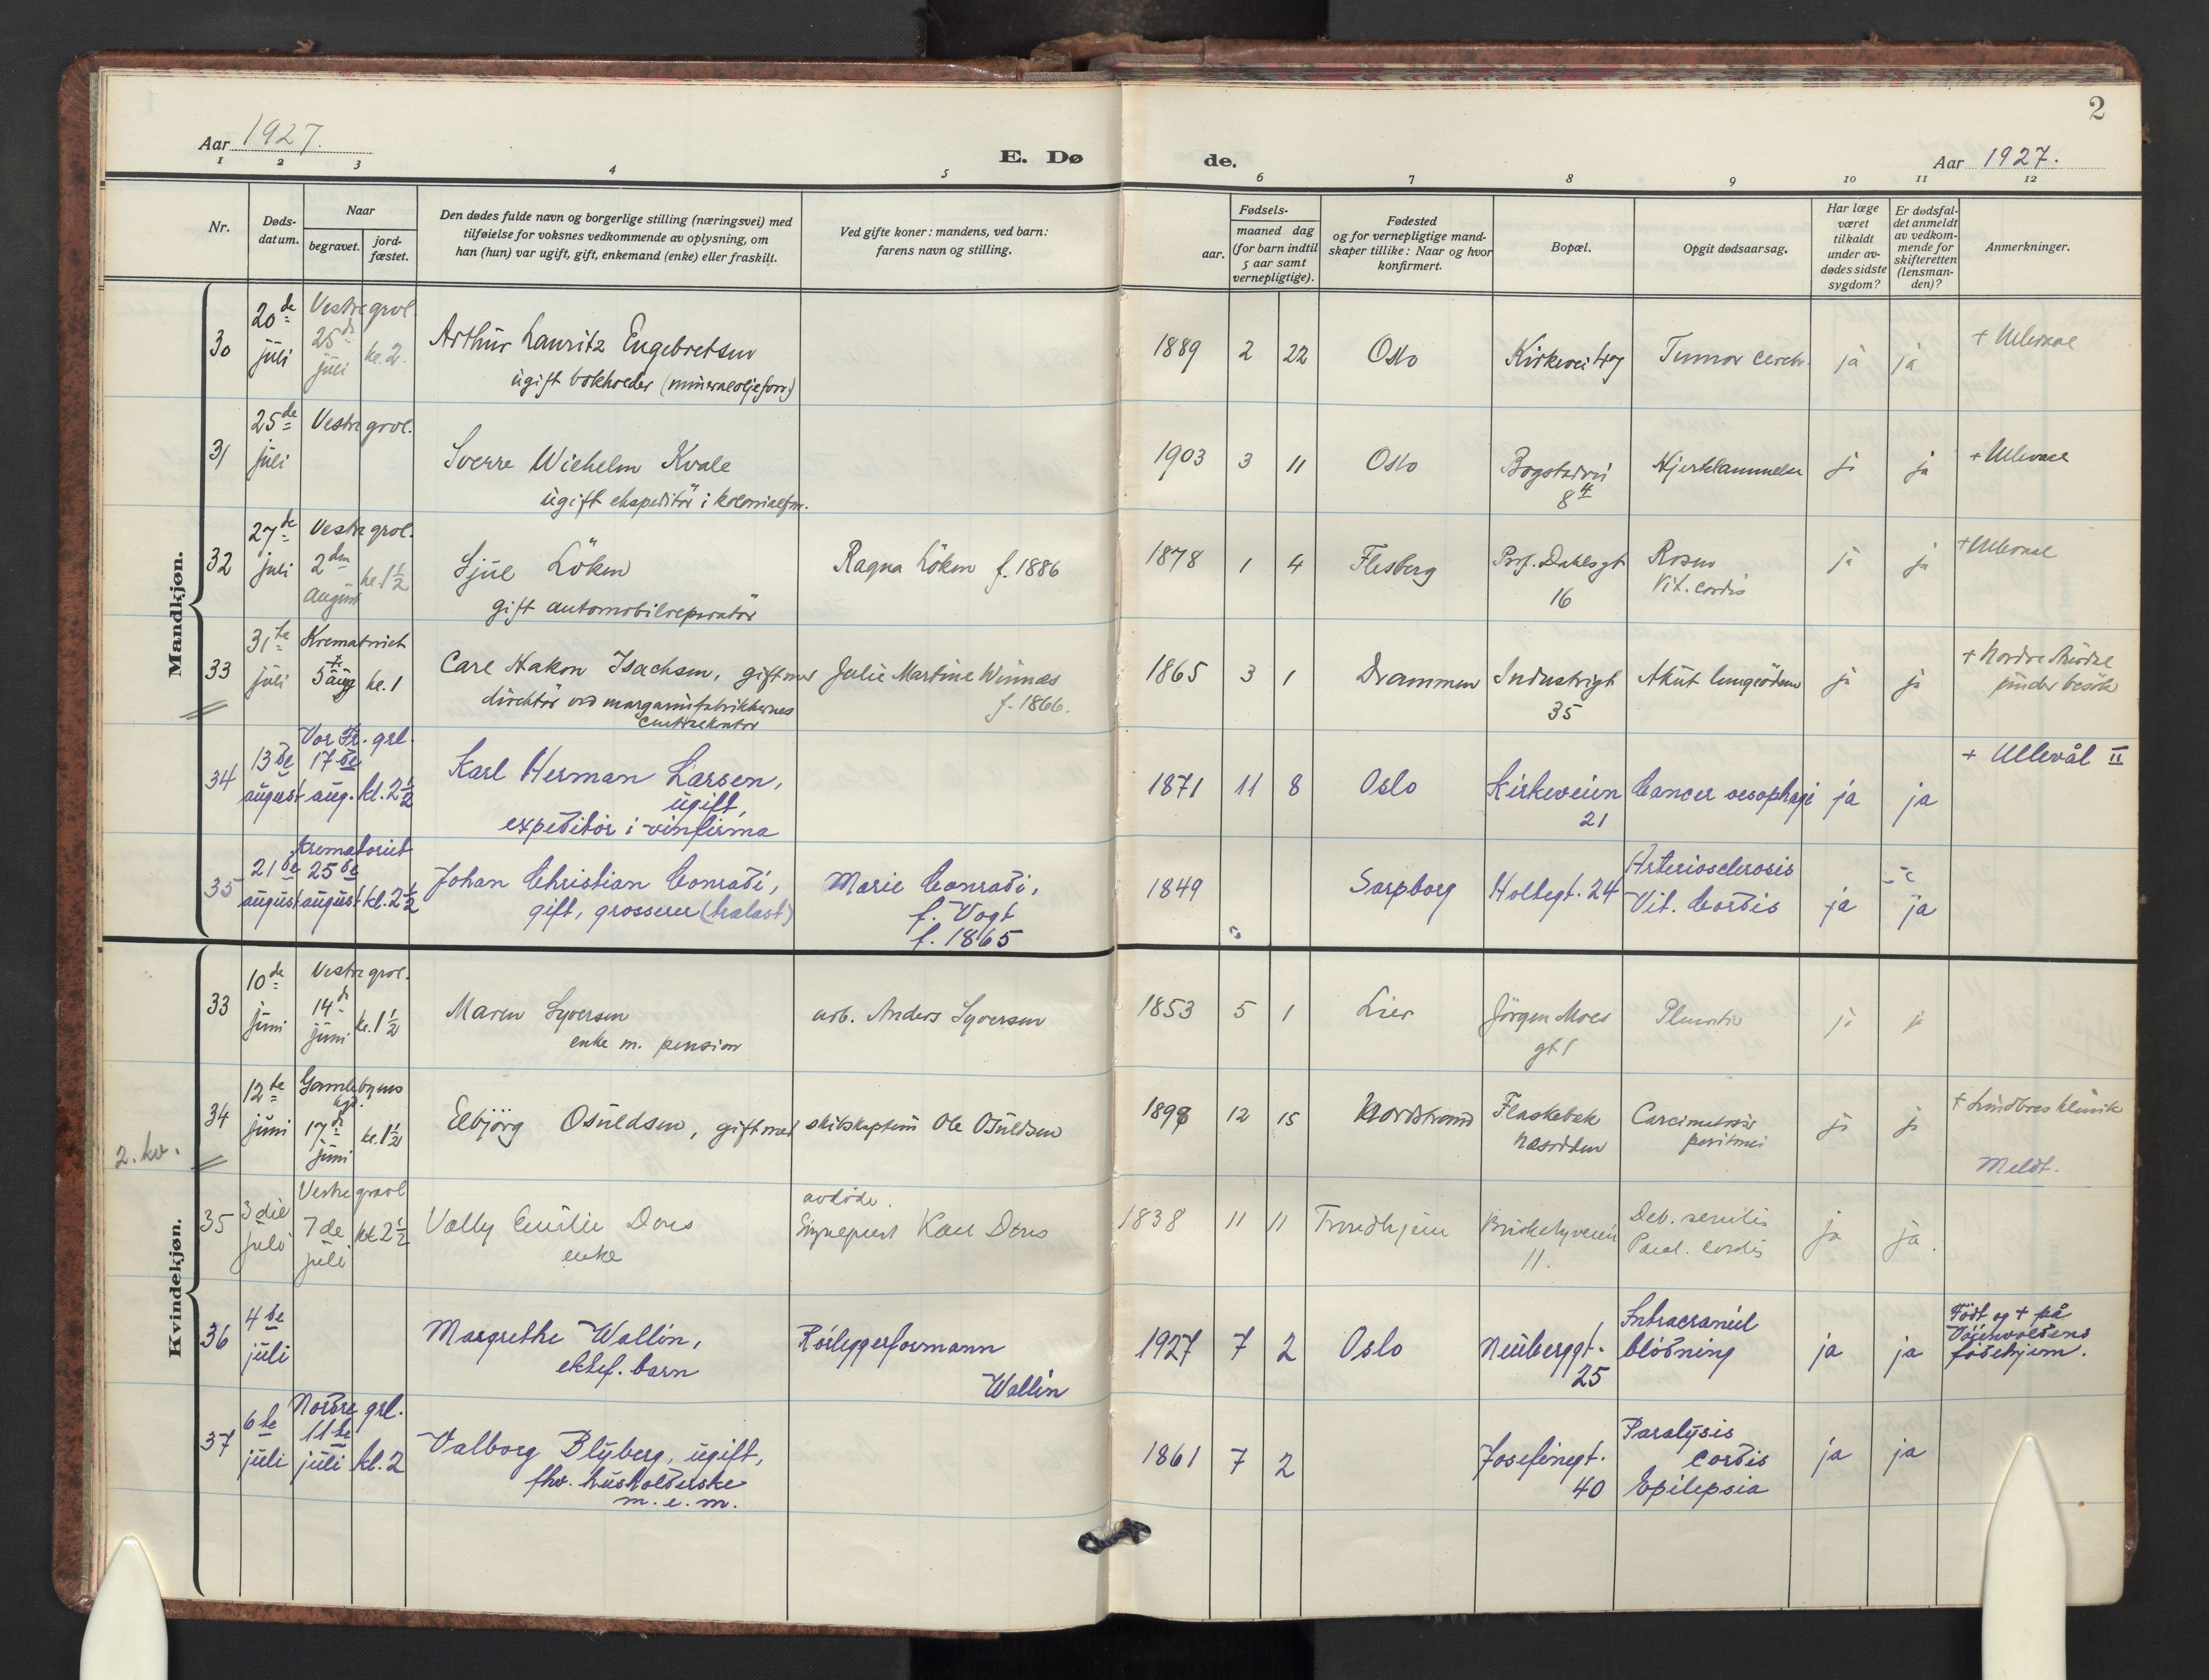 2
Aar 1927.
E. Døde.
Aar 1927.
1 2 3 4 5 6 7 8 9 10 11 12
Nr.
Døds-
datum.
Naar
begravet.
jord-
fæstet.
Den dødes fulde navn og borgerlige stilling (næringsvei) med
tilføielse for voksnes vedkommende av oplysning, om
han (hun) var ugift, gift, enkemand (enke) eller fraskilt.
Ved gifte koner: mandens, ved barn:
farens navn og stilling.
Fødsels-
aar.
maaned dag
(for barn indtil
5 aar samt
vernepligtige).
Fødested
og for vernepligtige mand-
skaper tillike: Naar og hvor
konfirmert.
Bopæl.
Opgit dødsaarsag.
Har læge
været
tilkaldt
under av-
dødes sidste
sygdom?
Er dødsfal-
det anmeldt
av vedkom-
mende for
skifteretten
(lensman-
den)?
Anmerkninger.
Mandkjøn.
30 20de juli Vestre grvl. 25de juli kl. 2.
Arthur Lauritz Engebretsen
ugift bokholder
1889 2 22 Oslo Kirkevei Tumor cerebr. ja ja + Ullevaal
31 25de juli Vestre grvl.
Sverre Wilhelm Kvale
ugift ekspeditör i kolonialfm.
1903 3 11 Oslo Bogstadvei 8 Hjertelammelse ja ja + Ullevaal
32 27de juli Vestre grvl. 2den august kl. 1 1/2
Sjul Löken
gift automobilreparatör
Ragna Löken f. 1886
1878 1 4 Flesberg Prof. Dahlsgt 16 Rosen Vit. cordis ja ja + Ullevaal
33 31te juli Krematoriet 5te aug kl. 1
Carl Hakon Isachsen, gift med
direktör ved margarinfabrikkernes
centralkontor
Julie Martine Winnæs
f. 1866.
1865 3 1 Drammen Industrigt 35 Akut lungeödem ja ja
under besök
34 13de august Vor Fr. grl. 17de aug. kl. 2 1/2
Karl Herman Larsen,
ugift,
expeditör i vinfirma
1871 11 8 Oslo Kirkeveien 21 Cancer oesophagi ja ja + Ullevål II
35 21de august Krematoriet 25de august kl. 2 1/2
Johan Christian Conradi,
gift, grosserer (trælast)
Marie Conradi,
f. Vogt
f. 1865
1849 Sarpborg Holtegt. 24 Arteriosclerosis Vit. Cordis ja ja
Kvindekjøn.
33 10de juni Vestre grvl. 14de juni kl. 1 1/2
Maren Syversen
enke m. pension
arb. Anders Syversen
1853 5 1 Lier Jörgen Moes gt 1 ja ja
34 12te juni Gamlebyens 17de juni kl. 1 1/2
Elbjörg Osuldsen, gift med
skibskaptein Ole Osuldsen
12 15 Nordstrand Flaskebek Næsodden ja ja
2. kv.
Meldt.
35 3die juli Vestre gravl 7de juli kl 2 1/2
Vally Emilie Dons
enke
avdöde.
Sogneprest Karl Dons
1838 11 11 Trondhjem Briskebyveien 11. Deb. senilis Paral. cordis ja ja.
36 4de juli
Margrethe Wallin,
ektef. barn
Rörleggerformann
Wallin
1927 7 2 Oslo Neuberggt. 25 Intracraniel blödning ja ja
Födt og + på
Våienvoldens
födehjem.
37 6te juli Nordre grl. 11te juli kl. 2
Valborg Blyberg, ugift,
fhv. husholderske
m. e. m.
1861 7 2 Josefinegt. 40 Paralysis cordis Epilepsia ja ja